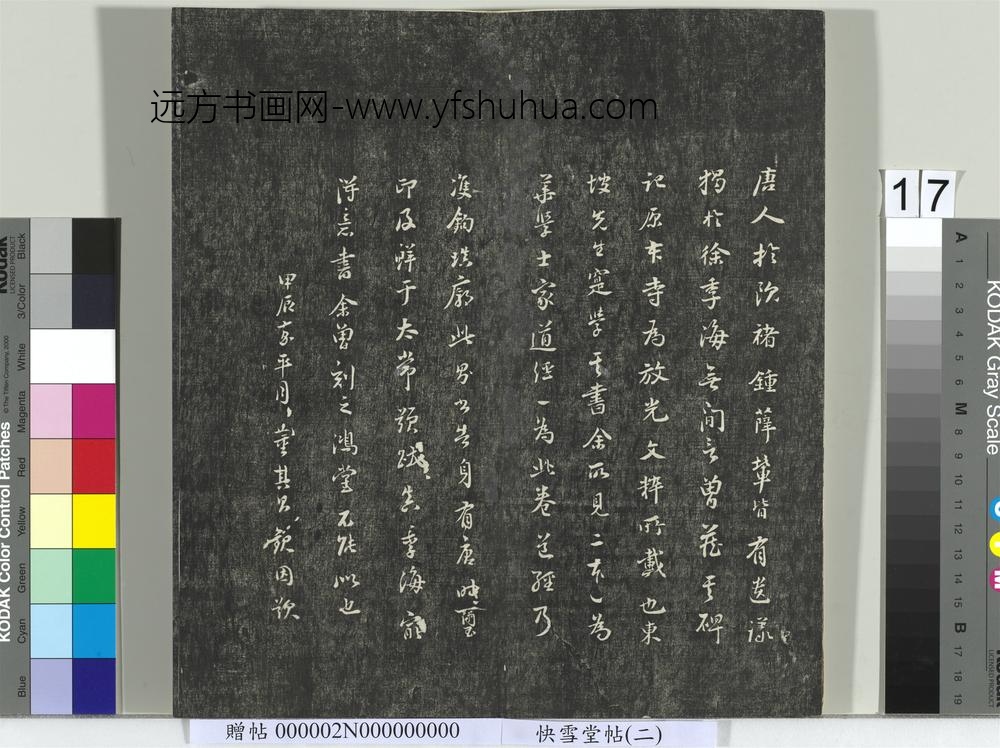 远方书画网-www.yfshuhua.com
唐人於欧褚鍾薛輩皆有遺議
獨於徐季海無间言曾其碑
記原本寺為放光文粹所載也東
坡先生寔學其書余所見二本一為
華學士家道经一為此卷道經乃
雙鈎填廓此告身有唐時璽
印及鮮于太常題跋真季海最
得意書余曾刻之鴻堂不能似也
甲辰嘉平月董其昌觀因題
17
贈帖 000002N000000000
快雪堂帖(二)
KODAK Color Control Patches
© The Tiffen Company, 2000
Kodak
LICENSED PRODUCT
Blue
Cyan
Green
Yellow
Red
Magenta
White
3/Color
Black
KODAK Gray Scale
A 1 2 3 4 5 6 M 8 9 10 11 12 13 14 15 B 17 18 19